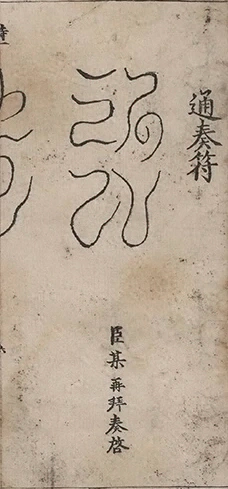 通奏符
臣某再拜奏啓